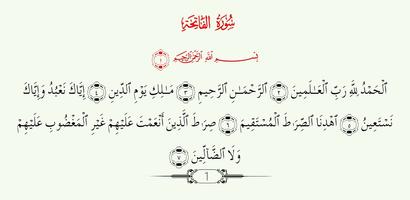 سُورَةُ الفَاتِحَةِ
بِسْمِ ٱللَّهِ ٱلرَّحْمَـٰنِ ٱلرَّحِيمِ ١
ٱلْحَمْدُ لِلَّهِ رَبِّ ٱلْعَـٰلَمِينَ ٢ ٱلرَّحْمَـٰنِ ٱلرَّحِيمِ ٣ مَـٰلِكِ يَوْمِ ٱلدِّينِ ٤ إِيَّاكَ نَعْبُدُ وَإِيَّاكَ
نَسْتَعِينُ ٥ ٱهْدِنَا ٱلصِّرَٰطَ ٱلْمُسْتَقِيمَ ٦ صِرَٰطَ ٱلَّذِينَ أَنْعَمْتَ عَلَيْهِمْ غَيْرِ ٱلْمَغْضُوبِ عَلَيْهِمْ
وَلَا ٱلضَّآلِّينَ ٧
1